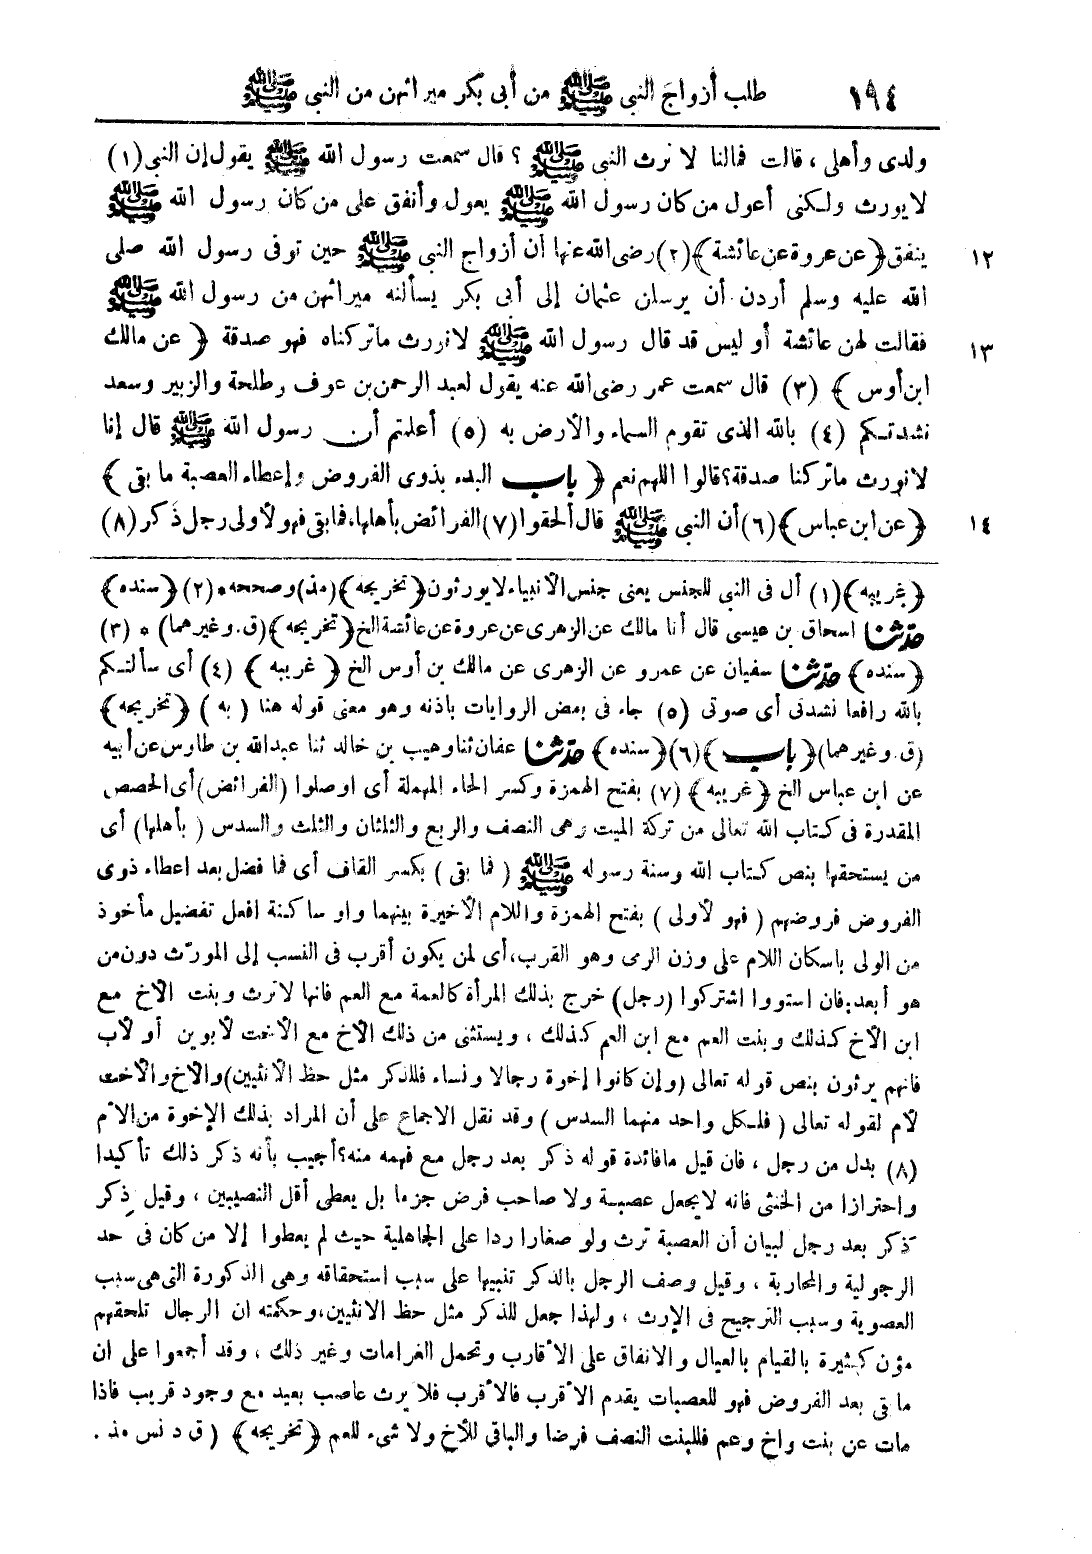 ١٩٤ طلب أزواج النبي ﷺ من أبى بكر ميراثهن من النبي ﷺ
ولدى وأهلى ، قالت فمالنا لا نرث النبي ﷺ ؟ قال سمعت رسول الله ﷺ يقول إن النبى (١)
لايورث ولكنى أعول من كان رسول الله ﷺ يعول وأنفق على من كان رسول الله ﷺ
١٢ ينفق ﴿عن عروة عن عائشة﴾ (٢) رضى الله عنها أن أزواج النبى ﷺ حين توفى رسول الله صلى
الله عليه وسلم أردن أن يرسلن عثمان إلى أبى بكر يسألنه ميراثهن من رسول الله ﷺ
١٣ فقالت لهن عائشة أو ليس قد قال رسول الله ﷺ لانورث ماتركناه فهو صدقة ﴿ عن مالك
ابن أوس ﴾ (٣) قال سمعت عمر رضى الله عنه يقول لعبد الرحمن بن عوف وطلحة والزبير وسعد
نشدتكم (٤) بالله الذى تقوم السماء والأرض به (٥) أعلمتم أن رسول الله ﷺ قال إنا
لانورث ماتركنا صدقة؟ قالوا اللهم نعم ﴿ باب البدء بذوى الفروض وإعطاء العصبة ما بقى ﴾
١٤ ﴿عن ابن عباس﴾ (٦) أن النبى ﷺ قال ألحقوا (٧) الفرائض بأهلها، فما بقى فهو لأولى رجل ذكر (٨)
﴿غريبه﴾ (١) أل فى النبى للجنس يعنى جنس الأنبياء لا يورثون ﴿تخريجه﴾ (مذ) وصححه * (٢) ﴿سنده﴾
حدثنا اسحاق بن عيسى قال أنا مالك عن الزهرى عن عروة عن عائشة الخ ﴿تخريجه﴾ (ق. وغيرهما) * (٣)
﴿سنده﴾ حدثنا سفيان عن عمرو عن الزهرى عن مالك بن أوس الخ ﴿ غريبه ﴾ (٤) أى سألتكم
بالله رافعا نشدتى أى صوتى (٥) جاء فى بعض الروايات باذنه وهو معنى قوله هنا (به) ﴿تخريجه﴾
(ق. وغيرهما) ﴿باب ﴾ (٦) ﴿سنده﴾ حدثنا عفان ثنا وهيب بن خالد ثنا عبدالله بن طاوس عن أبيه
عن ابن عباس الخ ﴿غريبه﴾ (٧) بفتح الهمزة وكسر الحاء المهملة أى اوصلوا (الفرائض) أى الحصص
المقدرة فى كتاب الله تعالى من تركة الميت وهى النصف والربع والثلثان والثلث والسدس (بأهلها) أى
من يستحقها بنص كتاب الله وسنة رسوله ﷺ ( فما بقى ) بكسر القاف أى فما فضل بعد اعطاء ذوى
الفروض فروضهم ( فهو لأولى ) بفتح الهمزة واللام الأخيرة بينهما واو ساكنة افعل تفضيل مأخوذ
من الولى باسكان اللام على وزن الرمى وهو القرب، أى لمن يكون أقرب فى النسب إلى المورّث دون من
هو أبعد: فان استووا اشتركوا (رجل) خرج بذلك المرأة كالعمة مع العم فانها لا ترث وبنت الأخ مع
ابن الأخ كذلك وبنت العم مع ابن العم كذلك ، ويستثنى من ذلك الأخ مع الأخت لأبوين أو لأب
فانهم يرثون بنص قوله تعالى (وإن كانوا إخوة رجالا ونساء فللذكر مثل حظ الأنثيين) والأخ والأخت
لأم لقوله تعالى ( فلكل واحد منهما السدس ) وقد نقل الاجماع على أن المراد بذلك الإخوة من الأم
(٨) بدل من رجل ، فان قيل مافائدة قوله ذكر بعد رجل مع فهمه منه؟ أجيب بأنه ذكر ذلك تأكيدا
واحترازا من الخنثى فانه لا يجعل عصبة ولا صاحب فرض جزما بل يعطى أقل النصيبين ، وقيل ذِكر
ذكر بعد رجل لبيان أن العصبة ترث ولو صغارا ردا على الجاهلية حيث لم يعطوا إلا من كان فى حد
الرجولية والمحاربة ، وقيل وصف الرجل بالذكر تنبيها على سبب استحقاقه وهى الذكورة التى هى سبب
العصوبة وسبب الترجيح فى الإرث ، ولهذا جعل للذكر مثل حظ الانثيين، وحكمته ان الرجال تلحقهم
مؤن كثيرة بالقيام بالعيال والانفاق على الأقارب وتحمل الغرامات وغير ذلك ، وقد أجمعوا على ان
ما بقى بعد الفروض فهو للعصبات يقدم الأقرب فالأقرب فلا يرث عاصب بعيد مع وجود قريب فاذا
مات عن بنت واخ وعم فللبنت النصف فرضا والباقى للأخ ولا شىء للعم ﴿تخريجه﴾ ( ق د نس مذ .